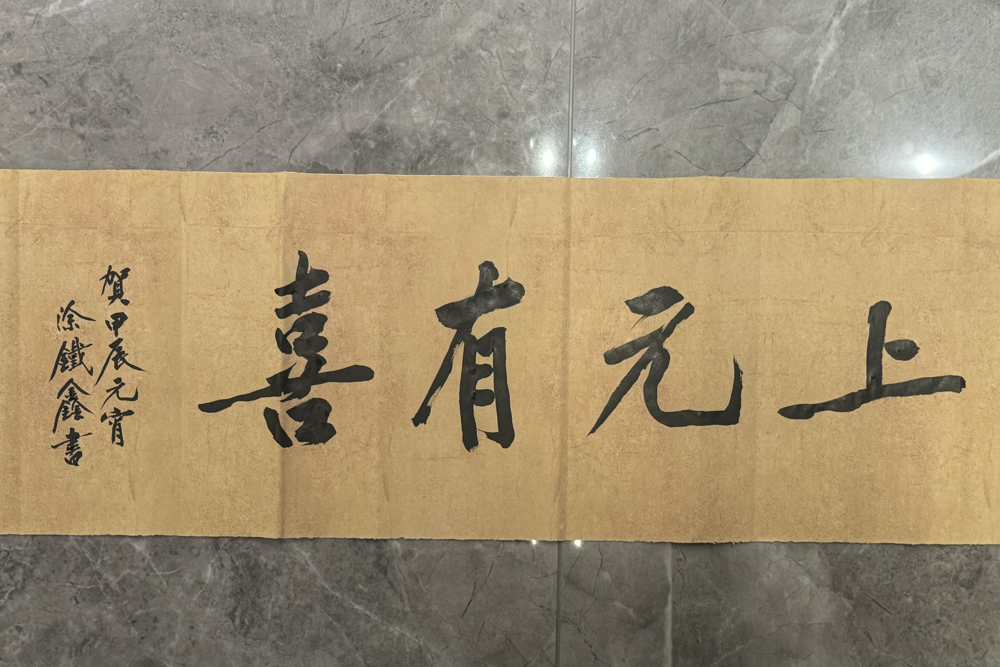 上元有喜
賀甲辰元宵
涂鐵鑫書